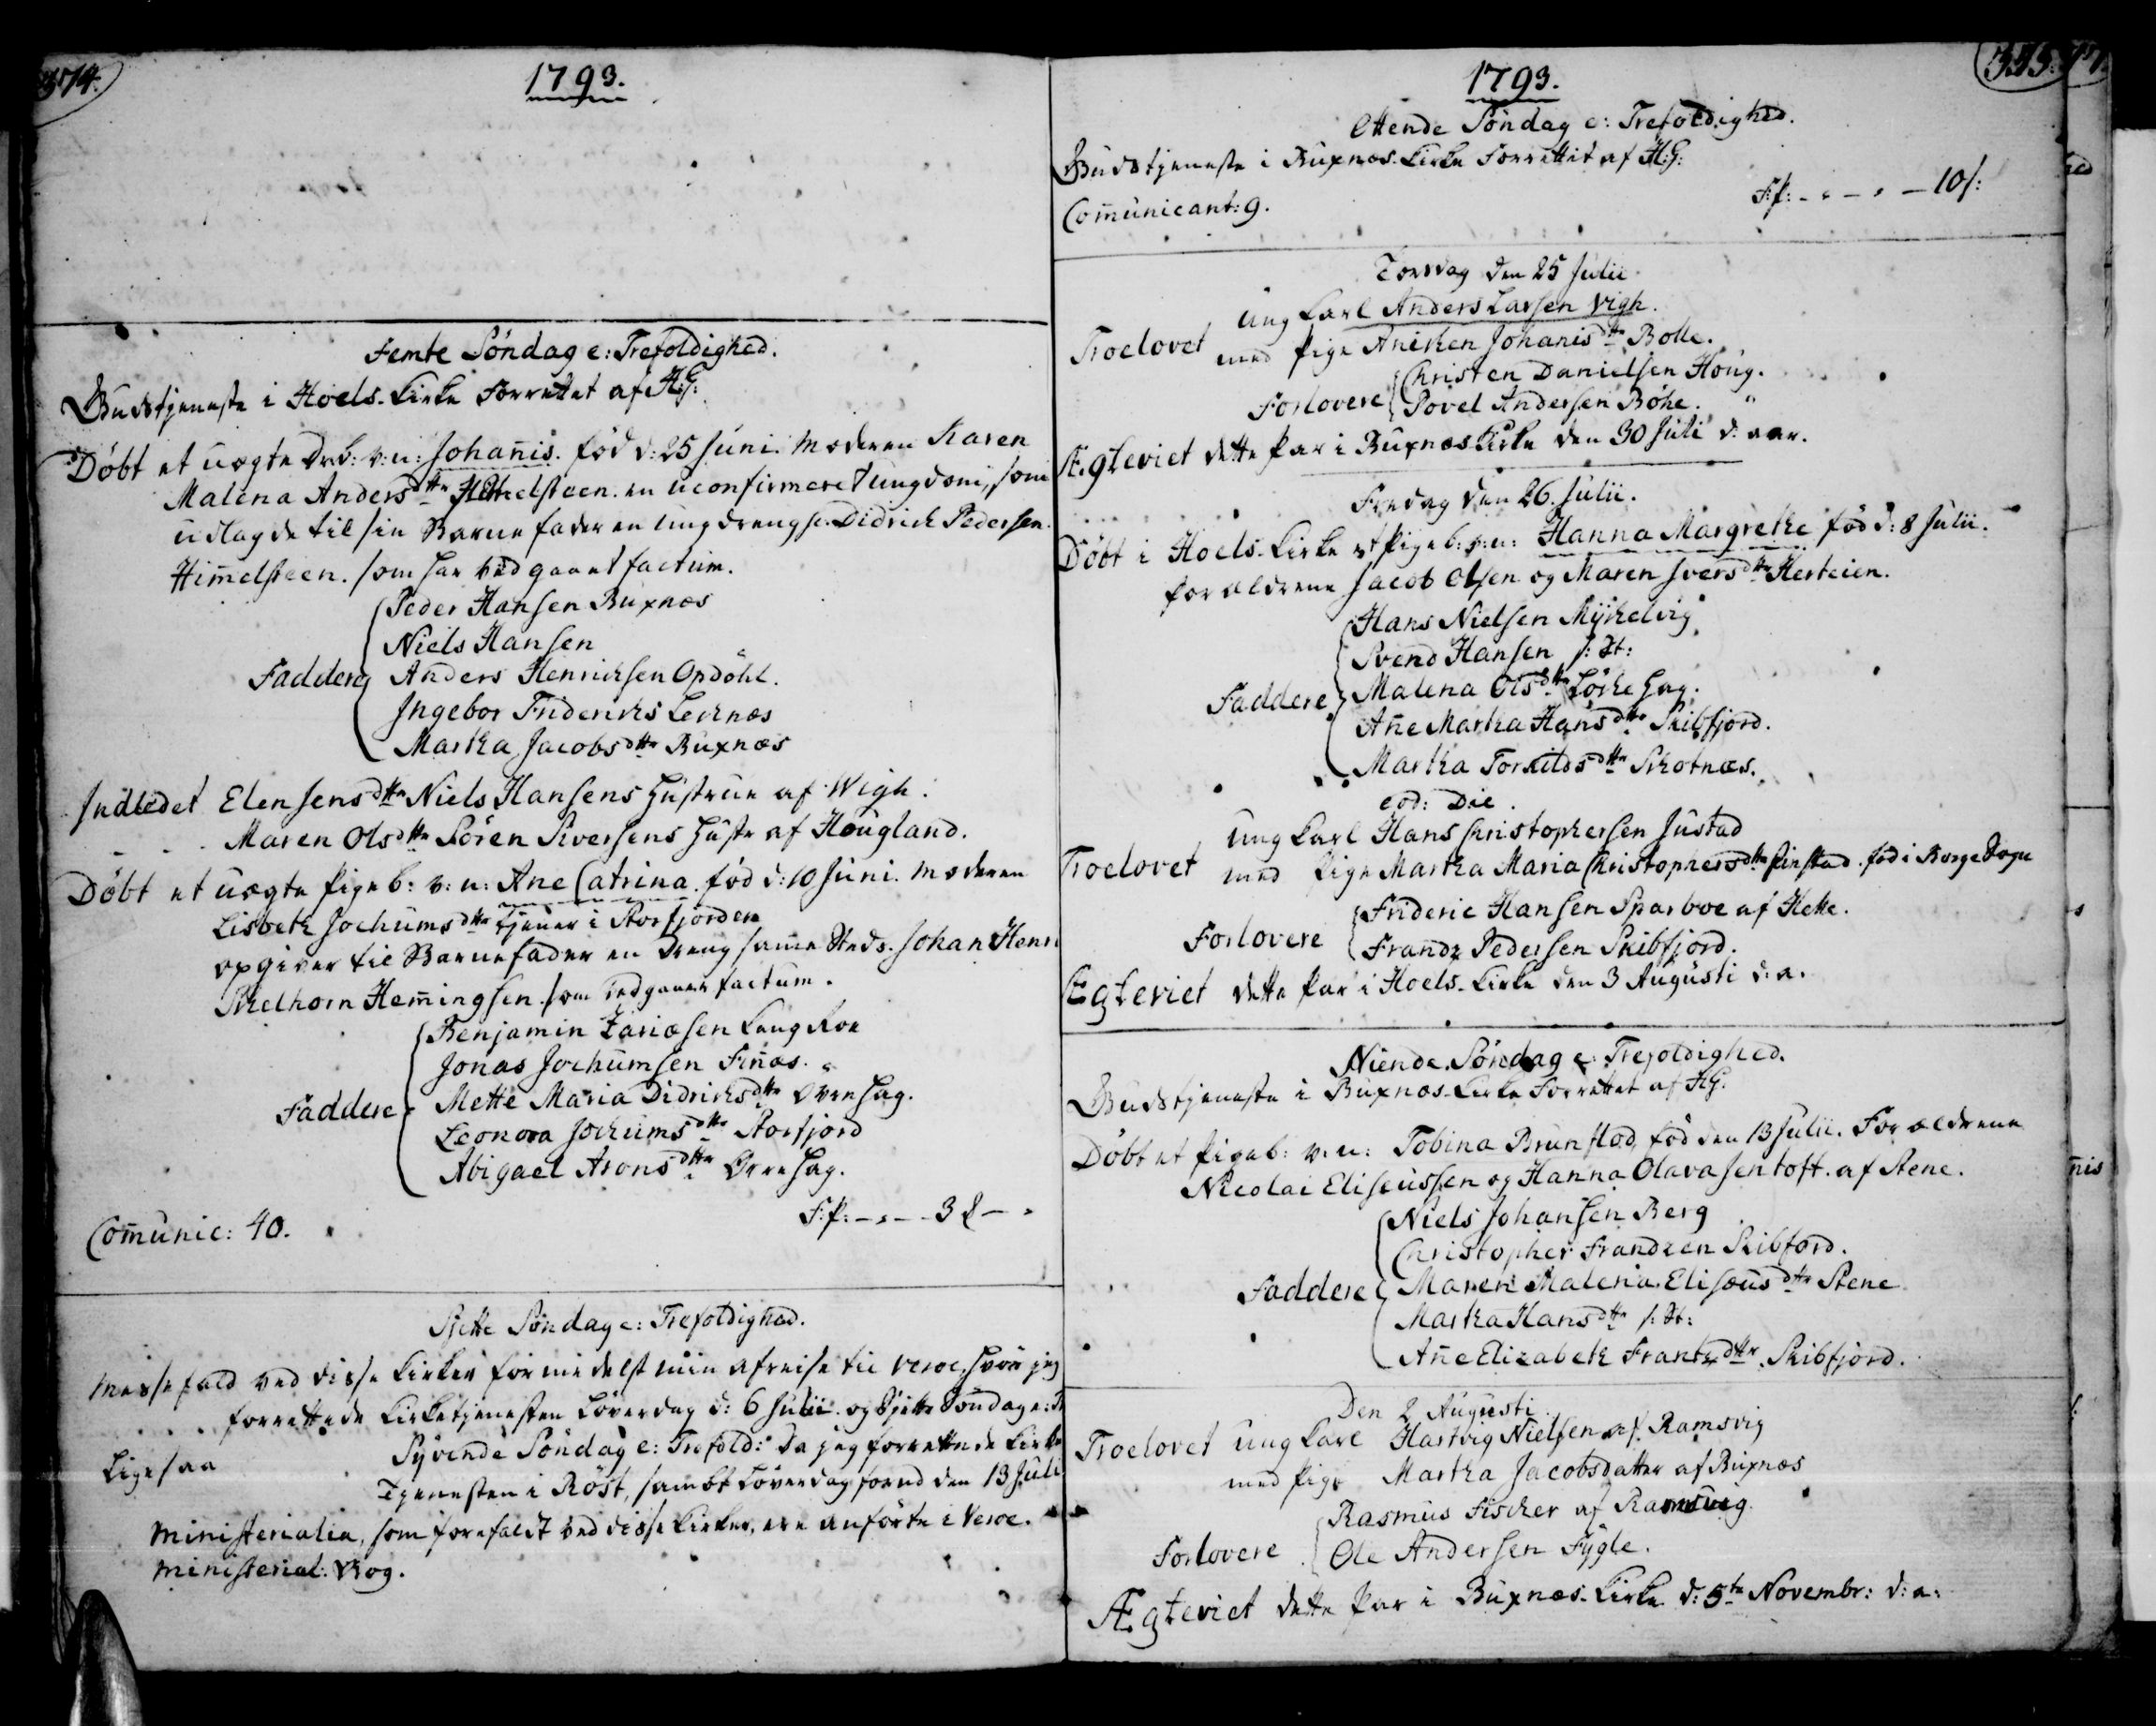 374.
1793.
Femte Söndag e: Trefoldighed.
Gudstjeneste i Hoels-Kirke Forrettet af H:G:
Döbt et uægte Dr.b: v: n: Johan̄is. föd d: 25 Juni. Moderen Karen
Malena Andersdttr Him̄elsteen. en uconfirmeret ungdom, som
udlagde til sin Barnefader en ung dreng s: Didrich Pedersen
Him̄elsteen. som har vedgaaet factum.
Peder Hansen Buxnæs
Niels Hansen
Faddere Anders Henrichsen Opdöhl.
Ingebor Friderichs Lecknæs
Martha Jacobsdttr Buxnæs
Indledet Elen Jensdttr Niels Hansens Hustrue af Wigh.
Maren Olsdttr Sören Siversens Hustr af Hougland.
Döbt et uægte Pigeb: v: n: Ane Catrina. föd d: 10 Juni. Moderen
Lisbeth Jochumsdttr tjener i Storfjorden
opgiver til Barnefader en Dreng samme Steds. Johan Henr
Melhorn Hem̄ingsen. som vedgaaer factum.
Benjamin Zariæsen Laug
Jonas Jochumsen Fin̄æs.
Faddere Mette Maria Didrichsdttr Ovrehag.
Leonora Jochumsdttr Storfjord
Abigael Aronsdttr Ovrehag.
Com̄unic: 40. F:p: - " - 3 ß - "
Sjette Söndag e: Trefoldighed.
Messefald ved disse Kirker formedelst min afreise til Veröe, hvor jeg
forrettede Kirketjenesten Löverdag d: 6 Julii. og Sjette Söndag e: Tr
Ligesaa Syvende Söndag e: Trefold: da jeg forrettede Kirke
Tjenesten i Röst, samt Löverdag forud den 13 Juli
Ministerialia, som forefaldt ved disse Kirker, ere anförte i Veröe.
Ministerial: Bog.
375.
1793.
Ottende Söndag e: Trefoldighed.
Gudstjeneste i Buxnæs-Kirke Forrettet af H:G:
Com̄unicant: 9. F:p: - " - " - 10 ß:
Torsdag den 25 Julii
Ung Karl Anders Larsen Vigh.
Troelovet med Pige Anicken Johanisdttr Bolle.
Christen Danielsen Houg.
Forlovere Povel Andersen Böhe.
Ægteviet dette Par i Buxnæs Kirke den 30 Juli d: aar.
Fredag den 26. Julii.
Döbt i Hoels-Kirke et Pigeb: v: n: Hanna Margrethe föd d: 8 Julii.
Forældrene Jacob Olsen og Maren Iversdttr Herteien.
Hans Nielsen Myhelvig
Svend Hansen s: St:
Faddere Malena Olsdttr Löchehag.
An̄e Martha Hansdttr Skibfjord.
Martha Torkildsdttr Skotnæs.
eod: Die.
Ung Karl Hans Christophersen Justad
Troelovet med Pige Martha Maria Christophersdttr Finstad. föd i Borge Sogn
Frideric Hansen Sparboe af Hette.
Forlovere Frandz Pedersen Skibfjord.
Ægteviet dette Par i Hoels-Kirke den 3 Augusti d: a.
Niende Söndag e: Trefoldighed.
Gudstjeneste i Buxnæs-Kirke Forrettet af HG:
Döbt et Pigeb: v: n: Tobina Brunstad, föd den 13 Julii. Forældrene
Nicolai Eliseussen og Hanna Olava Jentoft. af Stene.
Niels Johansen Berg
Christopher Frandzen Skibford.
Faddere Maren Malena Elisæusdttr Stene
Martha Hansdttr s: St:
An̄e Elizabeth Frantzdttr Skibfjord.
Den 2 Augusti
Troelovet Ung Karl Hartvig Nielsen af Ramsvig
med Pige Martha Jacobsdatter af Buxnæs
Rasmus Fischer af Ramsvig
Forlovere Ole Andersen Fygle.
Ægteviet dette Par i Buxnæs-Kirke d: 5te Novembr: d: a: